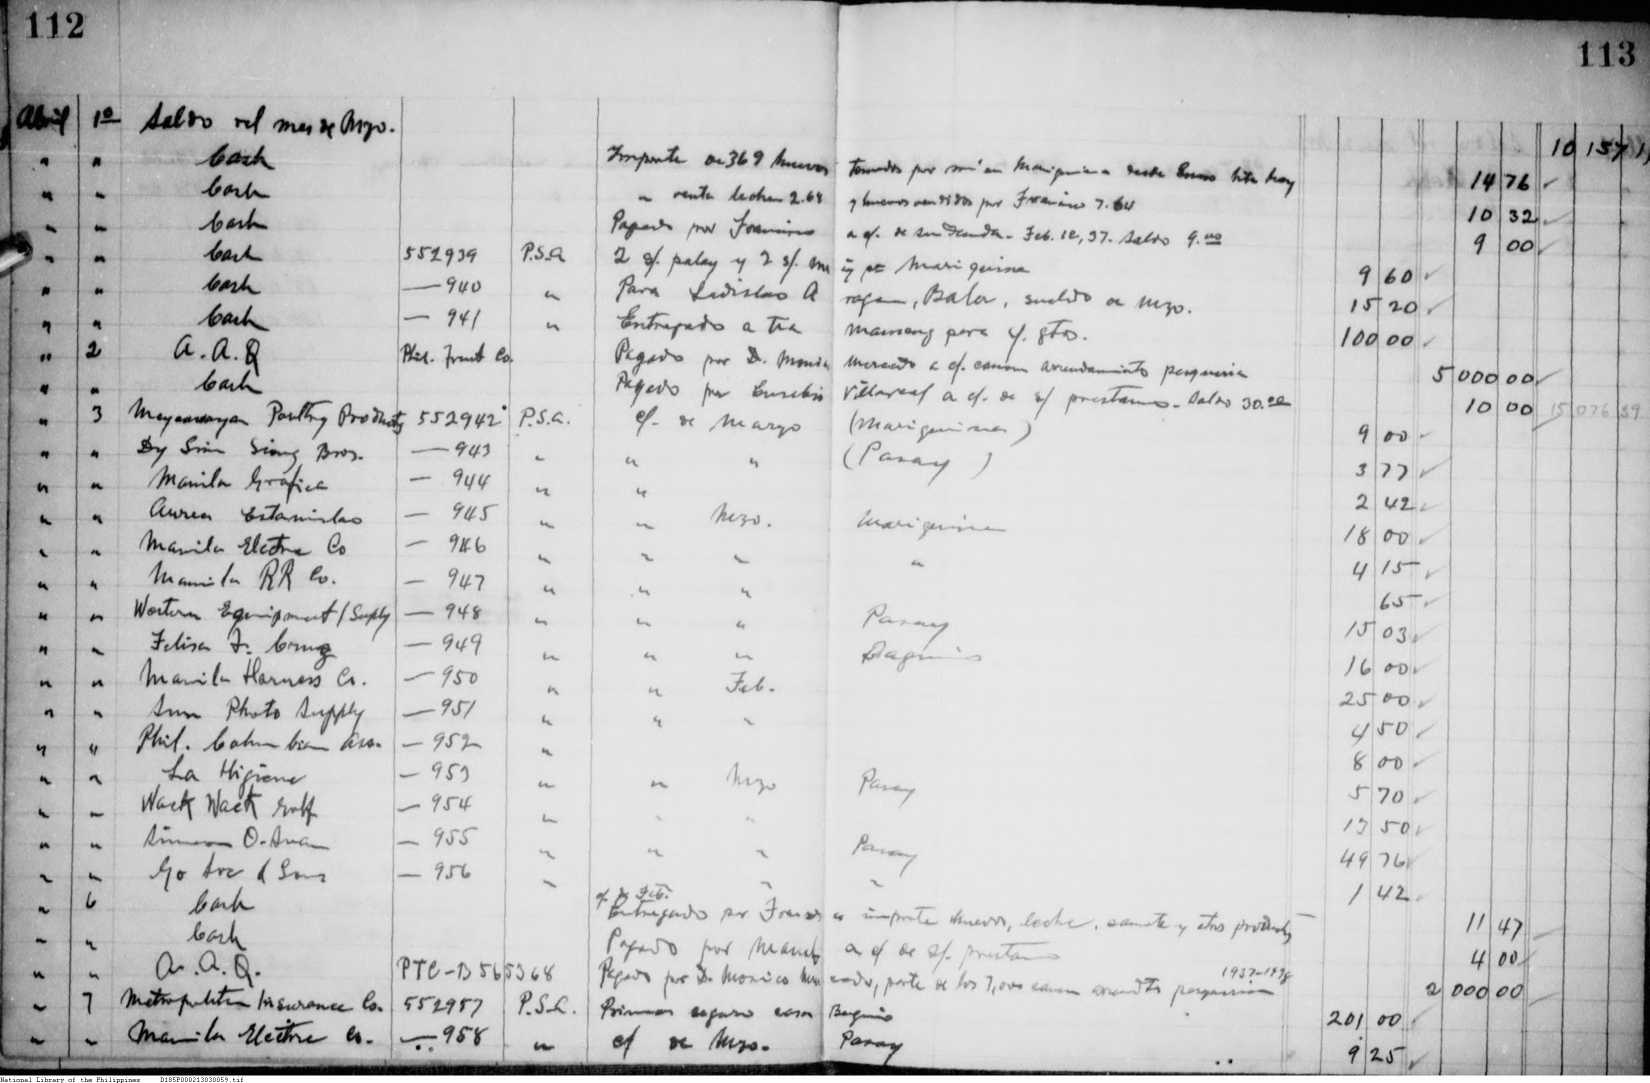 112
113
Abril 1º Saldo del mes de Mzo. 10 157
" " Cash Importe de 369 huevos tomados por mi en Mariquina desde Enero hta hoy 14 76 ✓
" " Cash " venta leche 2.68 y huevos vendidos por Francisco 7.64 10 32 ✓
" " Cash Pagado por Francisco a c/. de su deuda - Feb. 12, 37. Saldo 9.00 9 00 ✓
" " Cash 552939 P.S.A. 2 s/. palay y 2 s/. Mariquina 9 60 ✓
" " Cash — 940 " Para Ladislao Aragon, Baler, sueldo de Mzo. 15 20 ✓
" " Cash — 941 " Entregado a para s/. gtos. 100 00 ✓
" 2 A. A. Q Phil. Trust Co. Pagado por D. Monico Mercado a c/. canon arrendamiento pesqueria 5 000 00 ✓
" " Cash Pagado por Eusebio Villareal a c/. de s/ prestamo - Saldo 30.00 10 00 15,076 39
" 3 Meycauayan Poultry Products 552942 P.S.A. c/. de Marzo (Mariquina) 9 00 ✓
" " Dy Sim Siong Bros. — 943 " " " (Pasay) 3 77 ✓
" " Manila Grafica — 944 " " 2 42 ✓
" " Aurea Estanislao — 945 " " Mzo. Mariquina 18 00 ✓
" " Manila Electric Co — 946 " " " " 4 15 ✓
" " Manila RR Co. — 947 " " " 65 ✓
" " Western Equipment / Supply — 948 " " " Pasay 15 03 ✓
" " Felisa F. Cruz — 949 " " " Baguio 16 00 ✓
" " Manila Harness Co. — 950 " " Feb. 25 00 ✓
" " Sun Photo Supply — 951 " " " 4 50 ✓
" " Phil. Columbian Asso. — 952 " 8 00 ✓
" " La Higiene — 953 " " Mzo Pasay 5 70 ✓
" " Wack Wack Golf — 954 " " " 13 50 ✓
" " Simeon O. — 955 " " " Pasay 49 76 ✓
" " Go Soc & Sons — 956 " c/ de Feb. " " 1 42 ✓
" 6 Cash Entregado por Francisco importe huevos, leche, camote y otros productos 11 47 ✓
" " Cash Pagado por Manuel a c/ de s/. prestamo 4 00 ✓
" " A. A. Q. PTC-B565368 Pagado por D. Monico Mercado, parte de los 7,000 canon arrendto pesqueria 1937-1938 2 000 00 ✓
" 7 Metropolitan Insurance Co. 552957 P.S.A. Primas seguro casa Baguio 201 00 ✓
" " Manila Electric Co. — 958 " c/ de Mzo. Pasay 9 25 ✓
National Library of the Philippines D185P000213030059.tif